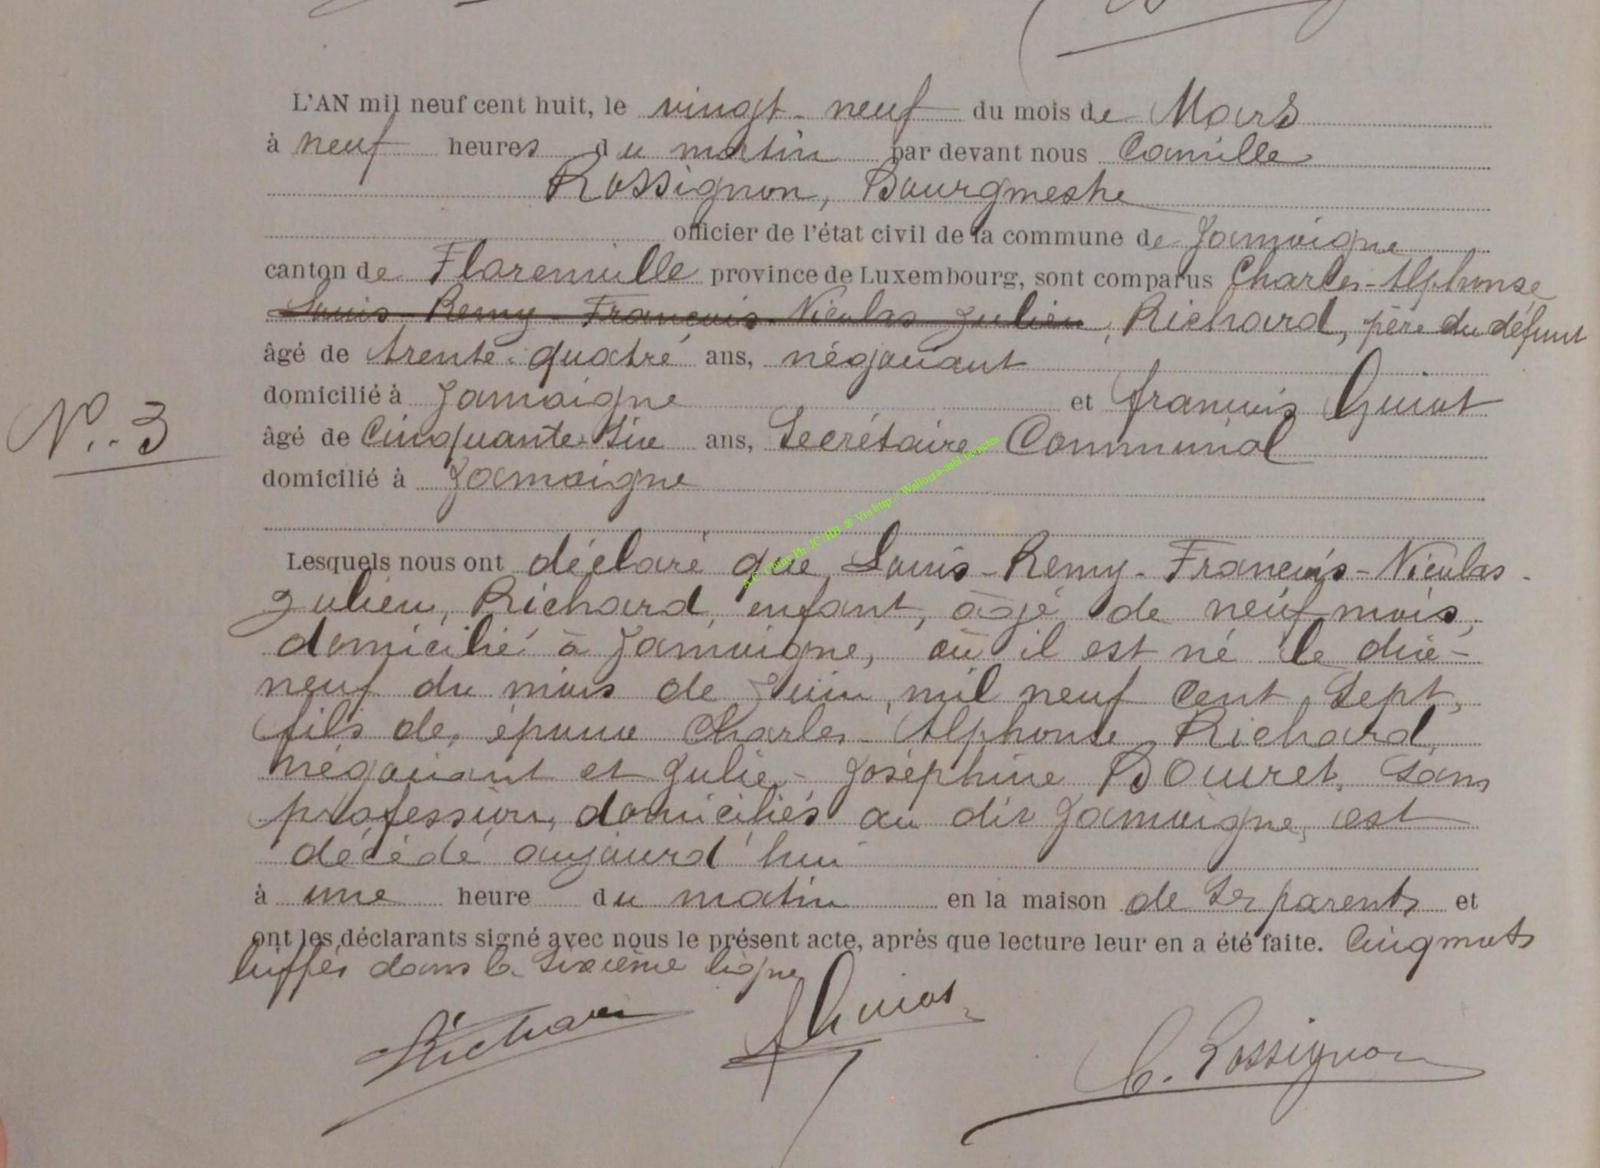 L'AN mil neuf cent huit, le vingt-neuf du mois de Mars
à neuf heures du matin par devant nous Camille
Rossignon, Bourgmestre
officier de l'état civil de la commune de Jamoigne
canton de Florenville province de Luxembourg, sont comparus Charles-Alphonse
Louis-Remy-François-Nicolas Julien, Richard, père du défunt
âgé de trente-quatre ans, négociant
domicilié à Jamoigne et François Guiot
N°. 3
âgé de Cinquante-six ans, Secrétaire Communal
domicilié à Jamoigne
Lesquels nous ont déclaré que Louis-Remy-François-Nicolas-
Julien, Richard, enfant, âgé de neuf mois,
domicilié à Jamoigne, où il est né le dix-
neuf du mois de Juin, mil neuf cent sept,
fils de, époux Charles-Alphonse Richard,
négociant et Julie-Joséphine Bouret, sans
profession, domiciliés au dit Jamoigne, est
décédé aujourd'hui
à une heure du matin en la maison de ses parents et
ont les déclarants signé avec nous le présent acte, après que lecture leur en a été faite. Cinq mots
biffés dans la sixième ligne
Richard
F Guiot
C. Rossignon